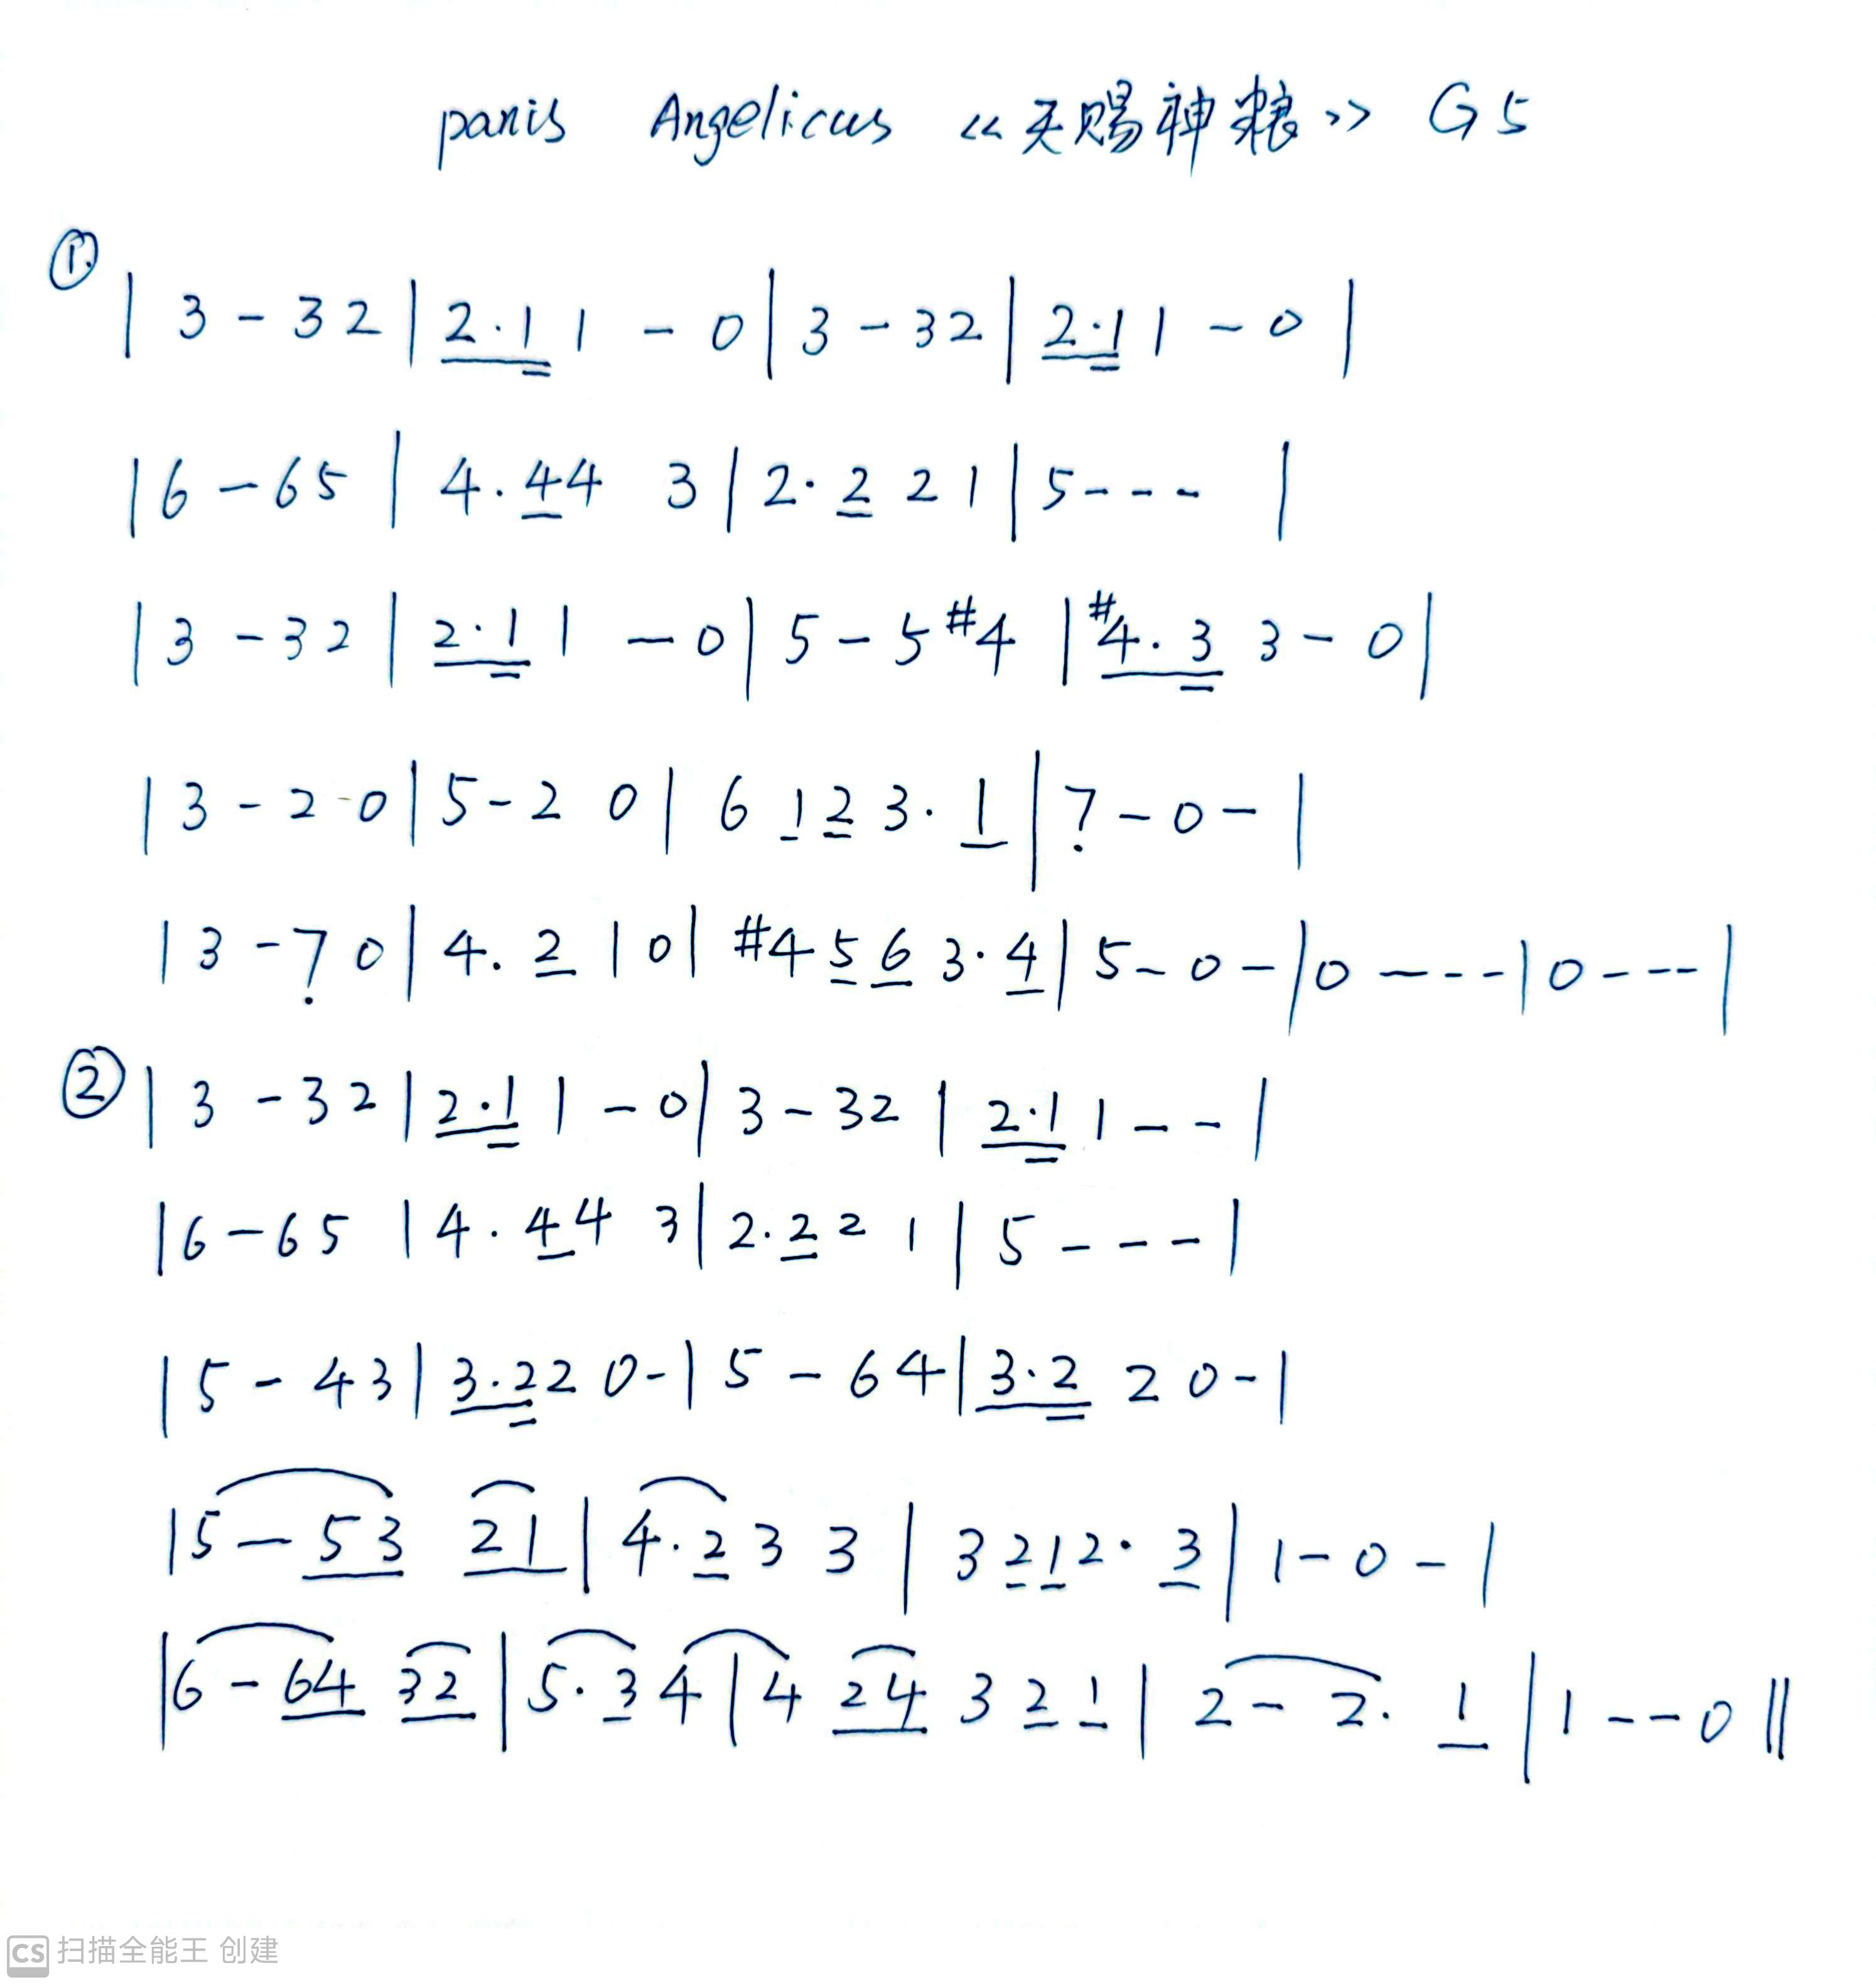 panis Angelicus 《天赐神粮》 G5
①
| 3 - 3 2 | 2 · 1 1 - 0 | 3 - 3 2 | 2 · 1 1 - 0 |
| 6 - 6 5 | 4 · 4 4 3 | 2 · 2 2 1 | 5 - - - |
| 3 - 3 2 | 2 · 1 1 - 0 | 5 - 5 #4 | #4 · 3 3 - 0 |
| 3 - 2 - 0 | 5 - 2 0 | 6 1 2 3 · 1 | 7̣ - 0 - |
| 3 - 7̣ 0 | 4 · 2 1 0 | #4 5 6 3 · 4 | 5 - 0 - | 0 - - - | 0 - - - |
② | 3 - 3 2 | 2 · 1 1 - 0 | 3 - 3 2 | 2 · 1 1 - - |
| 6 - 6 5 | 4 · 4 4 3 | 2 · 2 2 1 | 5 - - - |
| 5 - 4 3 | 3 · 2 2 0 - | 5 - 6 4 | 3 · 2 2 0 - |
| 5 - 5 3 2 1 | 4 · 2 3 3 | 3 2 1 2 · 3 | 1 - 0 - |
| 6 - 6 4 3 2 | 5 · 3 4 | 4 2 4 3 2 1 | 2 - 2 · 1 | 1 - - 0 ||
CS 扫描全能王 创建